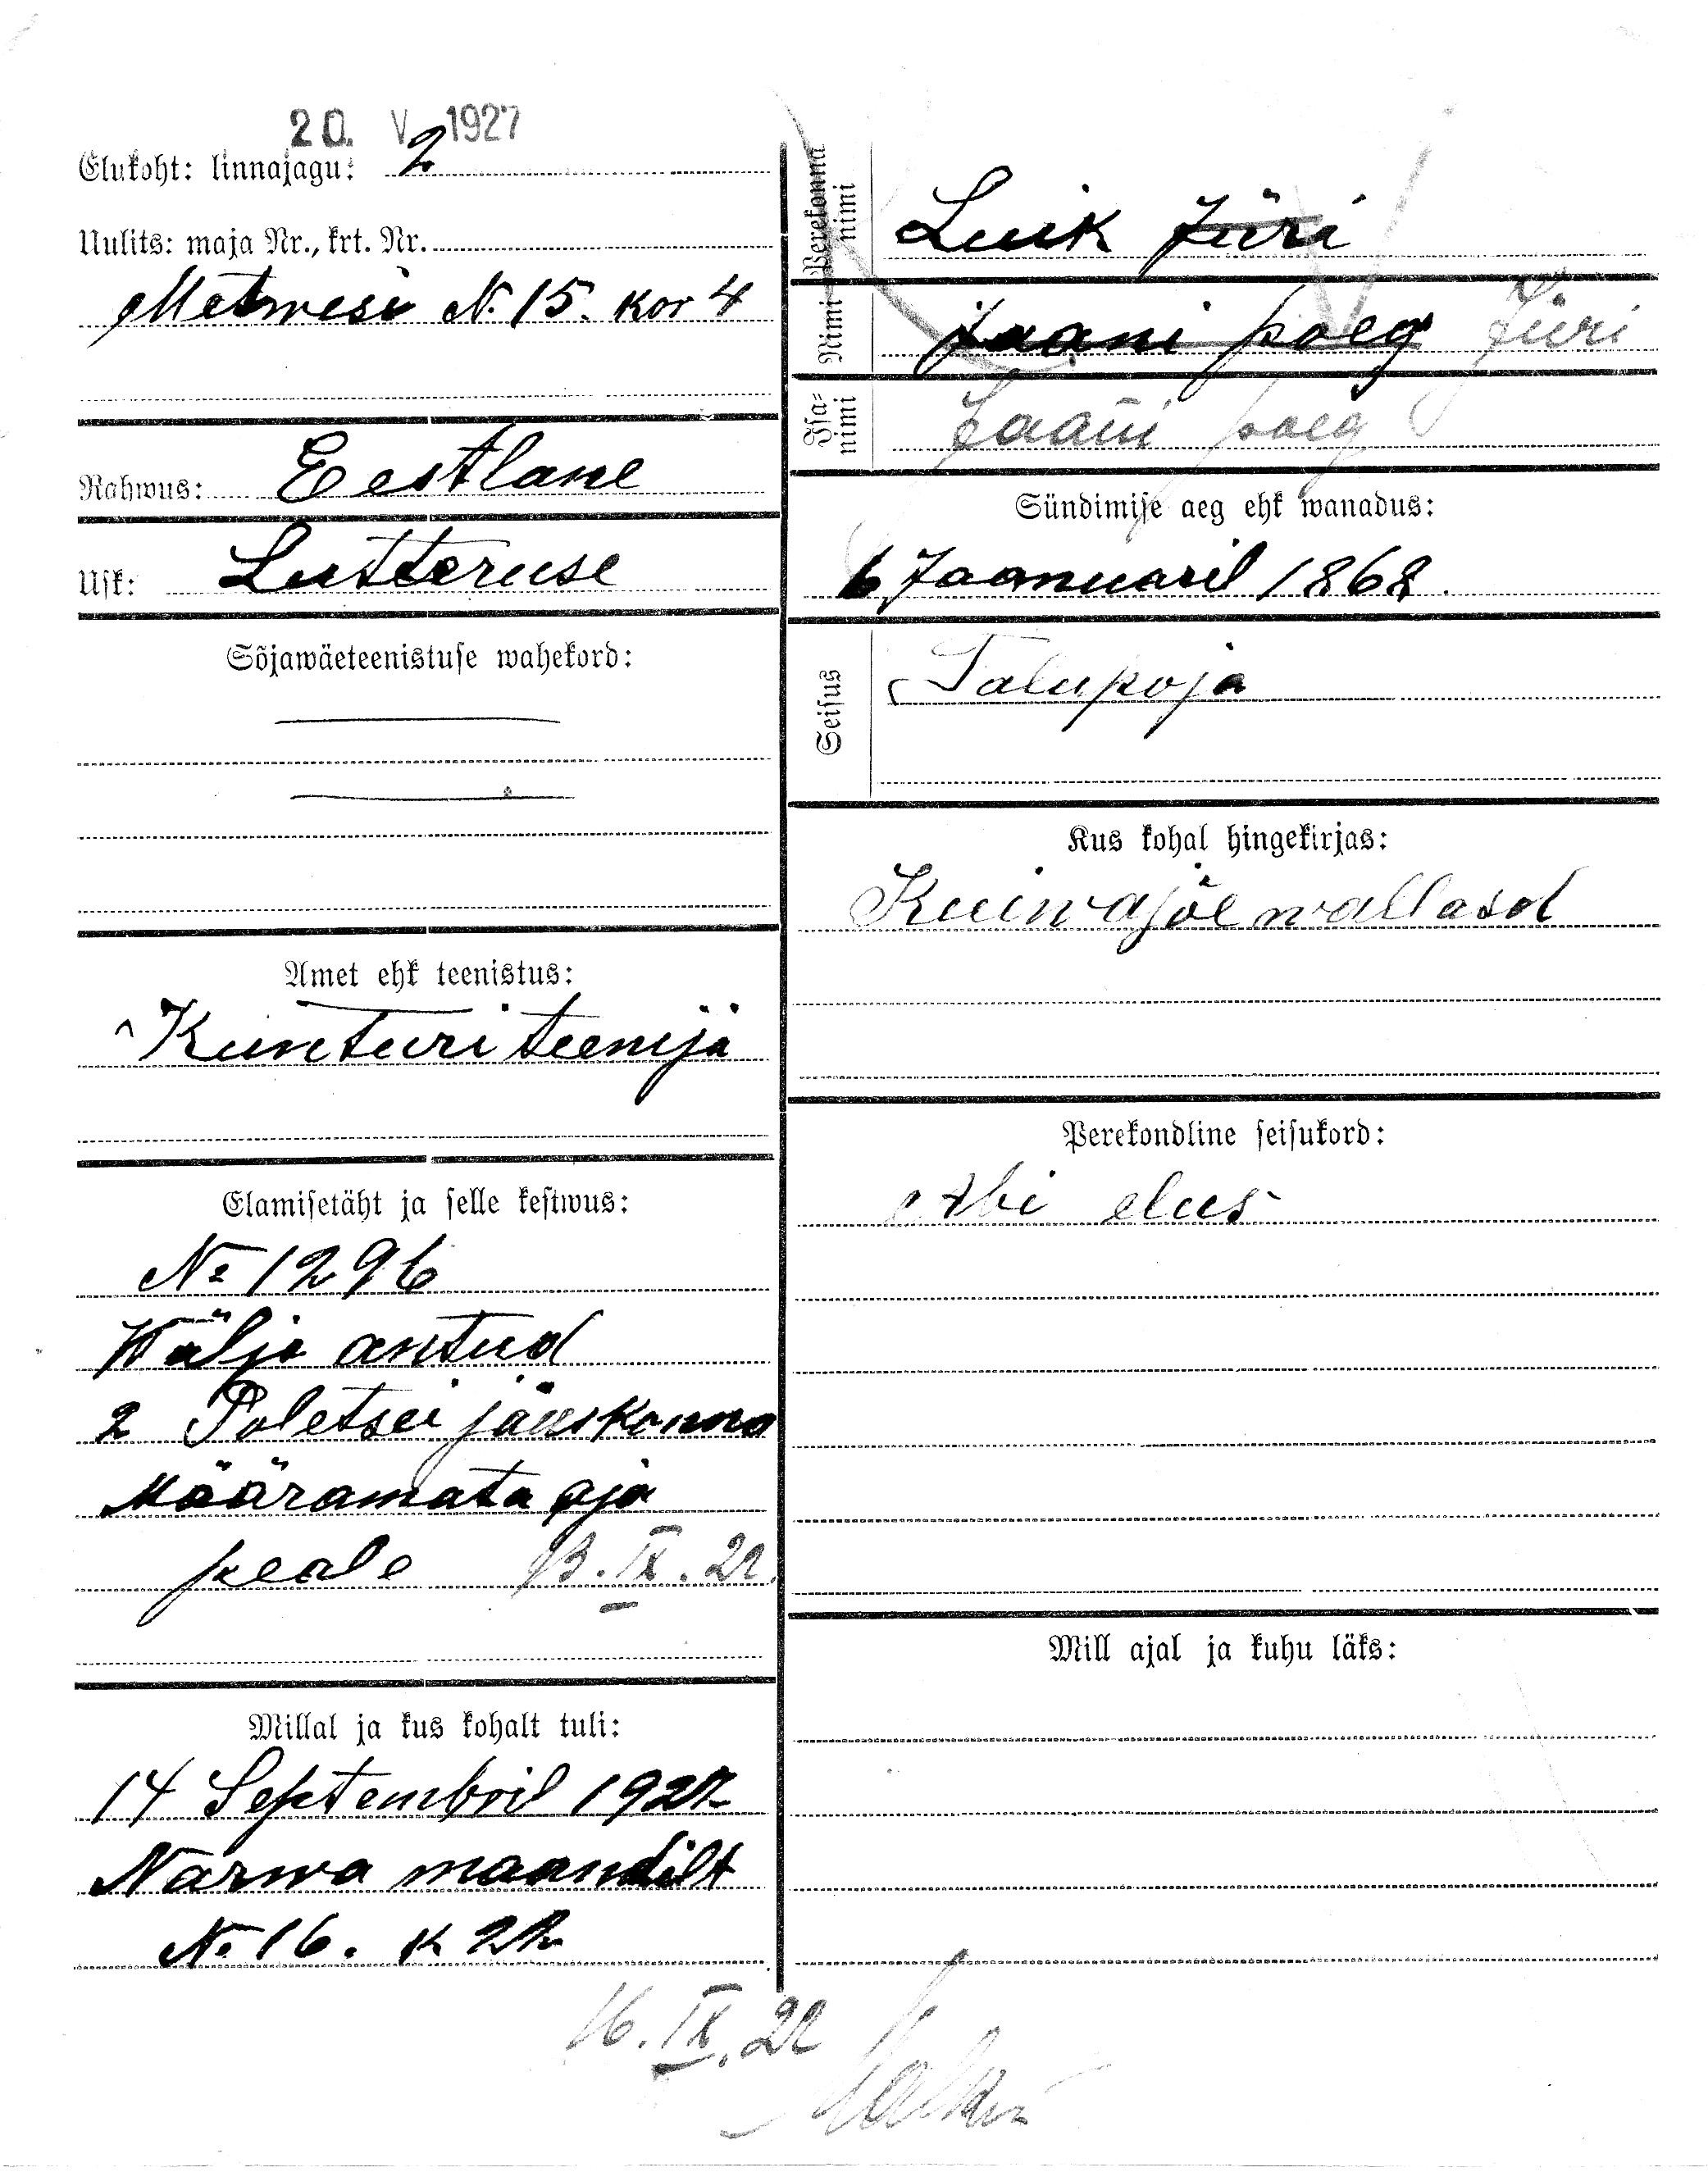 20. V 1927
Elukoht: linnajagu: 2
Uulits: maja Nr., krt. Nr.
Metwesi N. 15. kor 4
Rahwus: Eestlane
Usk: Lutteruse
Sõjawäeteenistuse wahekord:
Amet ehk teenistus:
Kunturi teenija
Elamisetäht ja selle kestwus:
№ 1296
Wälja antud
2 Poletsei jäuskonna
Määramata aja
peale 13. IX. 22.
Millal ja kus kohalt tuli:
14 Septembril 1922
Narwa maandilt
N. 16. k 22
Perekonna nimi
Luik Jüri
Nimi
Jaani poeg Jüri
Isa-nimi
Jaani poeg
Sündimise aeg ehk wanadus:
6 Jaanuaril 1868.
Seisus
Talupoja
Kus kohal hingekirjas:
Kuiwajõe wallasd
Perekondline seisukord:
Abi elus
Mill ajal ja kuhu läks:
16. IX. 22